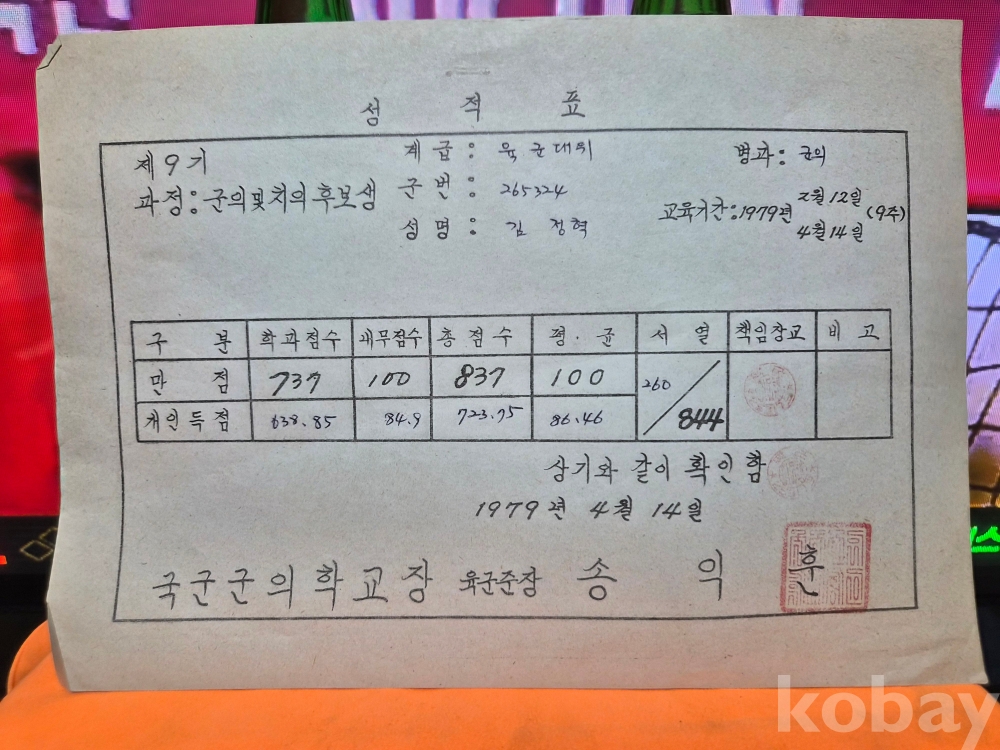 성 적 표
제9기
과정:군의및치의후보생
계 급 : 육군대위
군 번 : 265324
성 명 : 김 정 혁
병과: 군의
교육기간:1979년 2월12일 4월14일 (9주)
구 분 학과점수 내무점수 총점수 평.균 서 열 책임장교 비 고
만 점 737 100 837 100 260/844
개인득점 638.85 84.9 723.75 86.46
상기와 같이 확인함
1979년 4월 14일
국군군의학교장 육군준장 송 익 훈
kobay